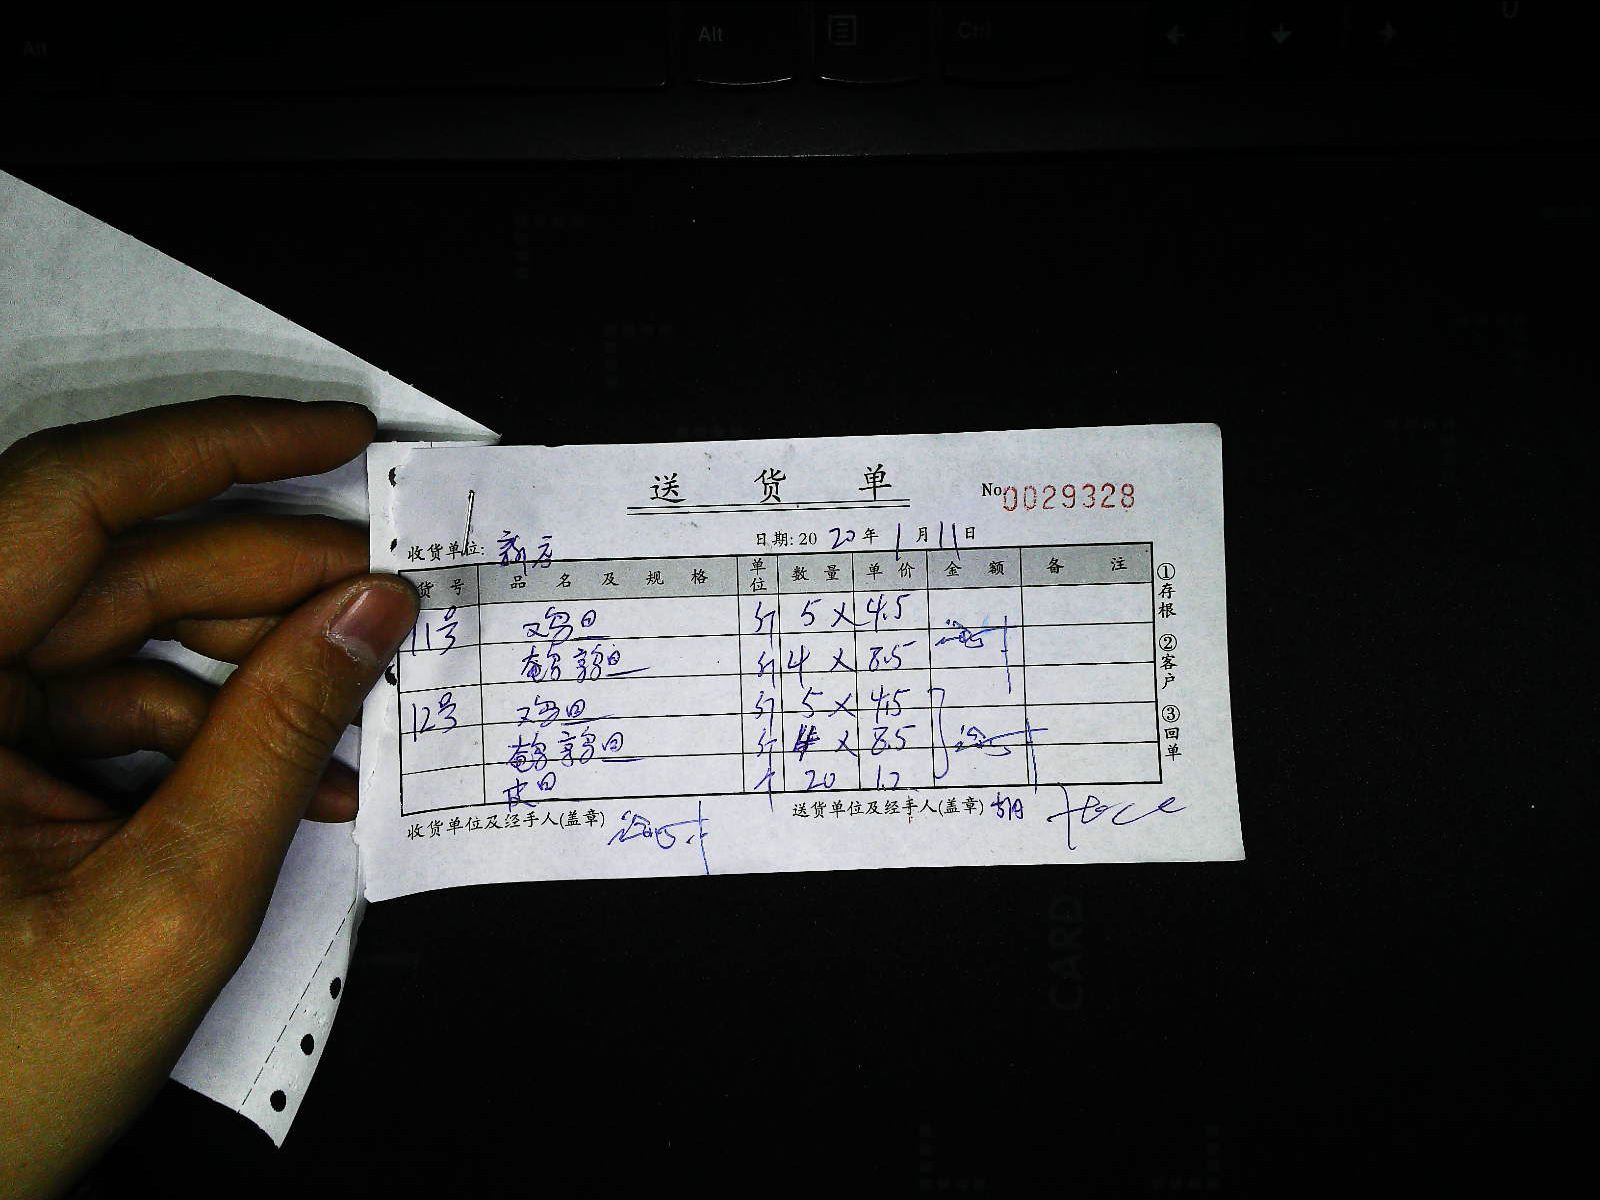 Alt
Alt
Ctrl
送货单
No 0029328
收货单位: 新店
日期: 2020年1月11日
货号 品名及规格 单位 数量 单价 金额 备注
11号 又鸟旦 斤 5 × 4.5
鹌鹑旦 斤 4 × 8.5
12号 又鸟旦 斤 5 × 4.5
鹌鹑旦 斤 4 × 8.5
皮旦 个 20 1.2
收货单位及经手人(盖章)
送货单位及经手人(盖章) 胡
①存根 ②客户 ③回单
CARD